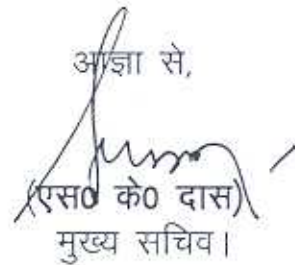 आज्ञा से,
(एस0 के0 दास)
मुख्य सचिव।